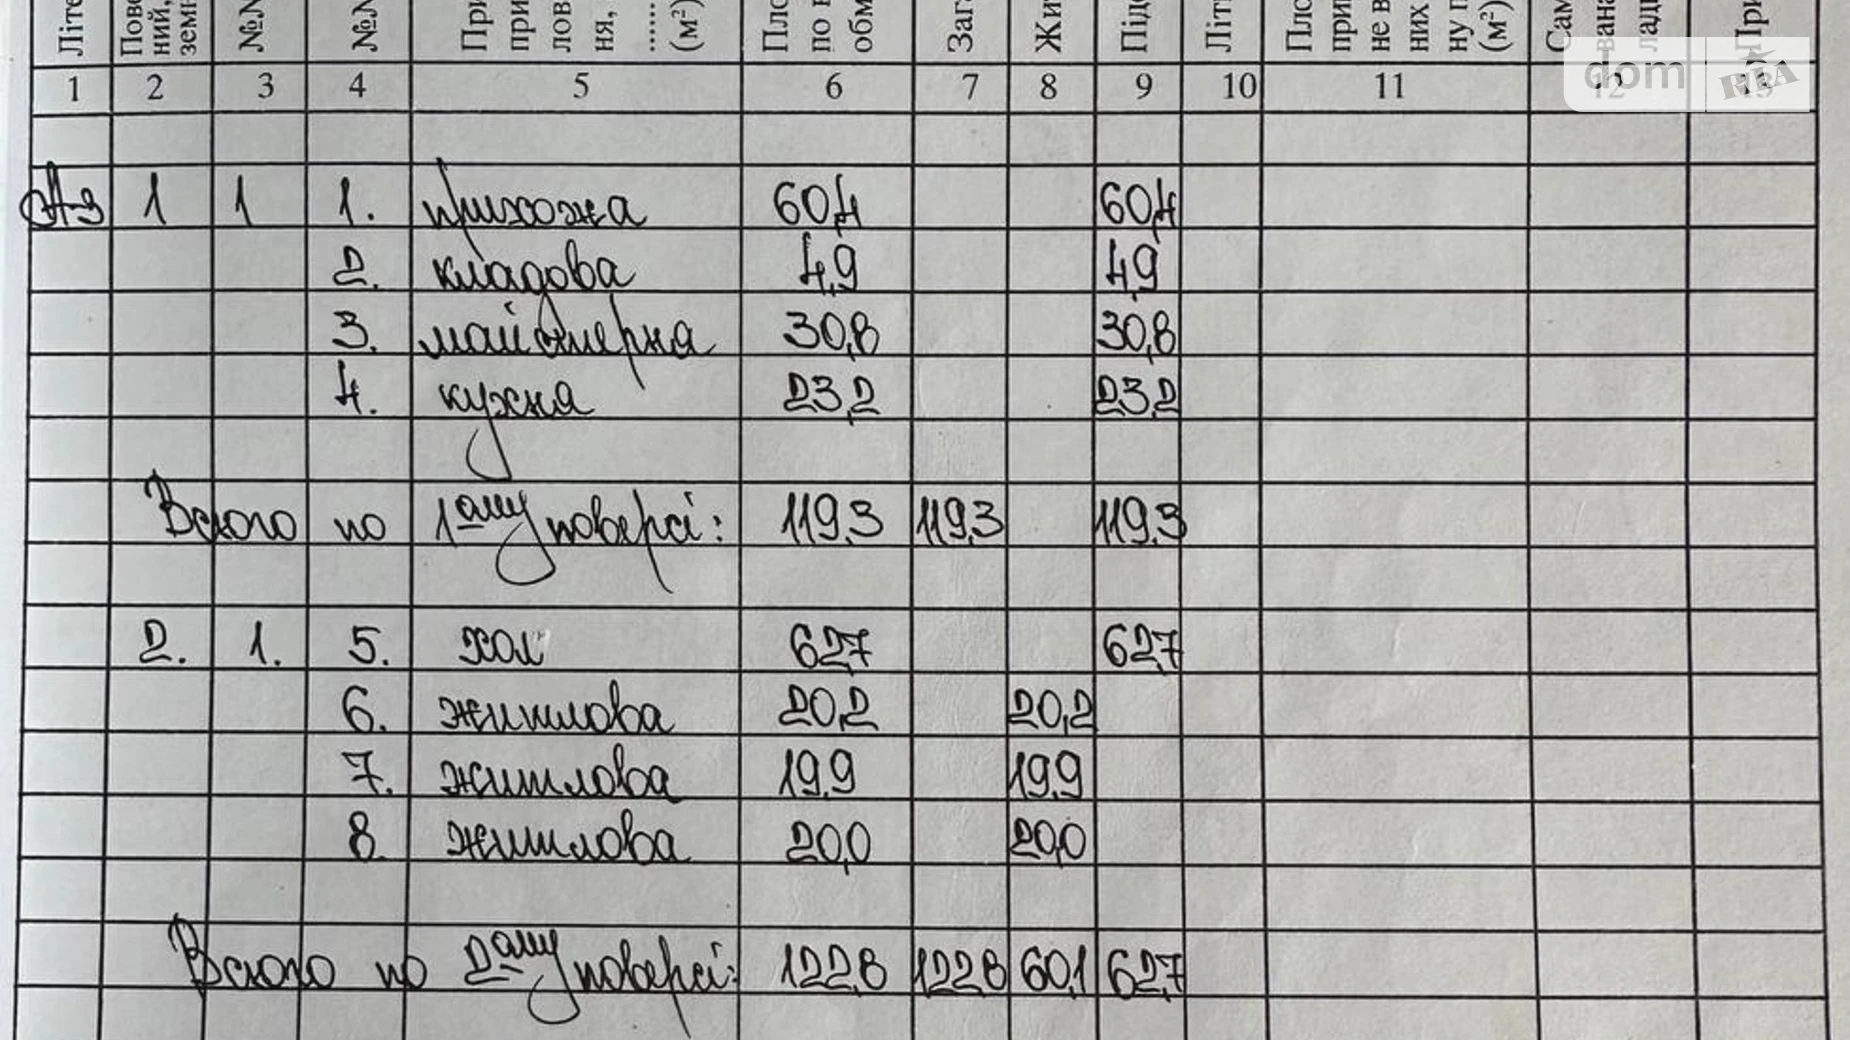 Літе Пове ний, земн №№ №№ При при лов ня, ...... (м²) Пло по в обм Зага Жит Підс Літ Пло при не в них ну п (м²) Сам вана ладн При
1 2 3 4 5 6 7 8 9 10 11 12 13
dom RIA
А-3 1 1 1. прихожа 60,4 60,4
2. кладова 4,9 4,9
3. майстерня 30,8 30,8
4. кухня 23,2 23,2
Всього по 1ому поверсі: 119,3 119,3 119,3
2. 1. 5. хол 62,7 62,7
6. житлова 20,2 20,2
7. житлова 19,9 19,9
8. житлова 20,0 20,0
Всього по 2ому поверсі: 122,8 122,8 60,1 62,7